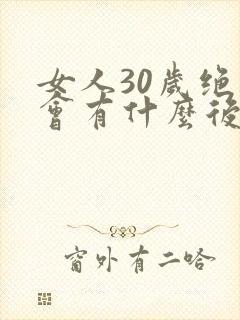 女人30歲绝
會有什麼後
窗外有二哈